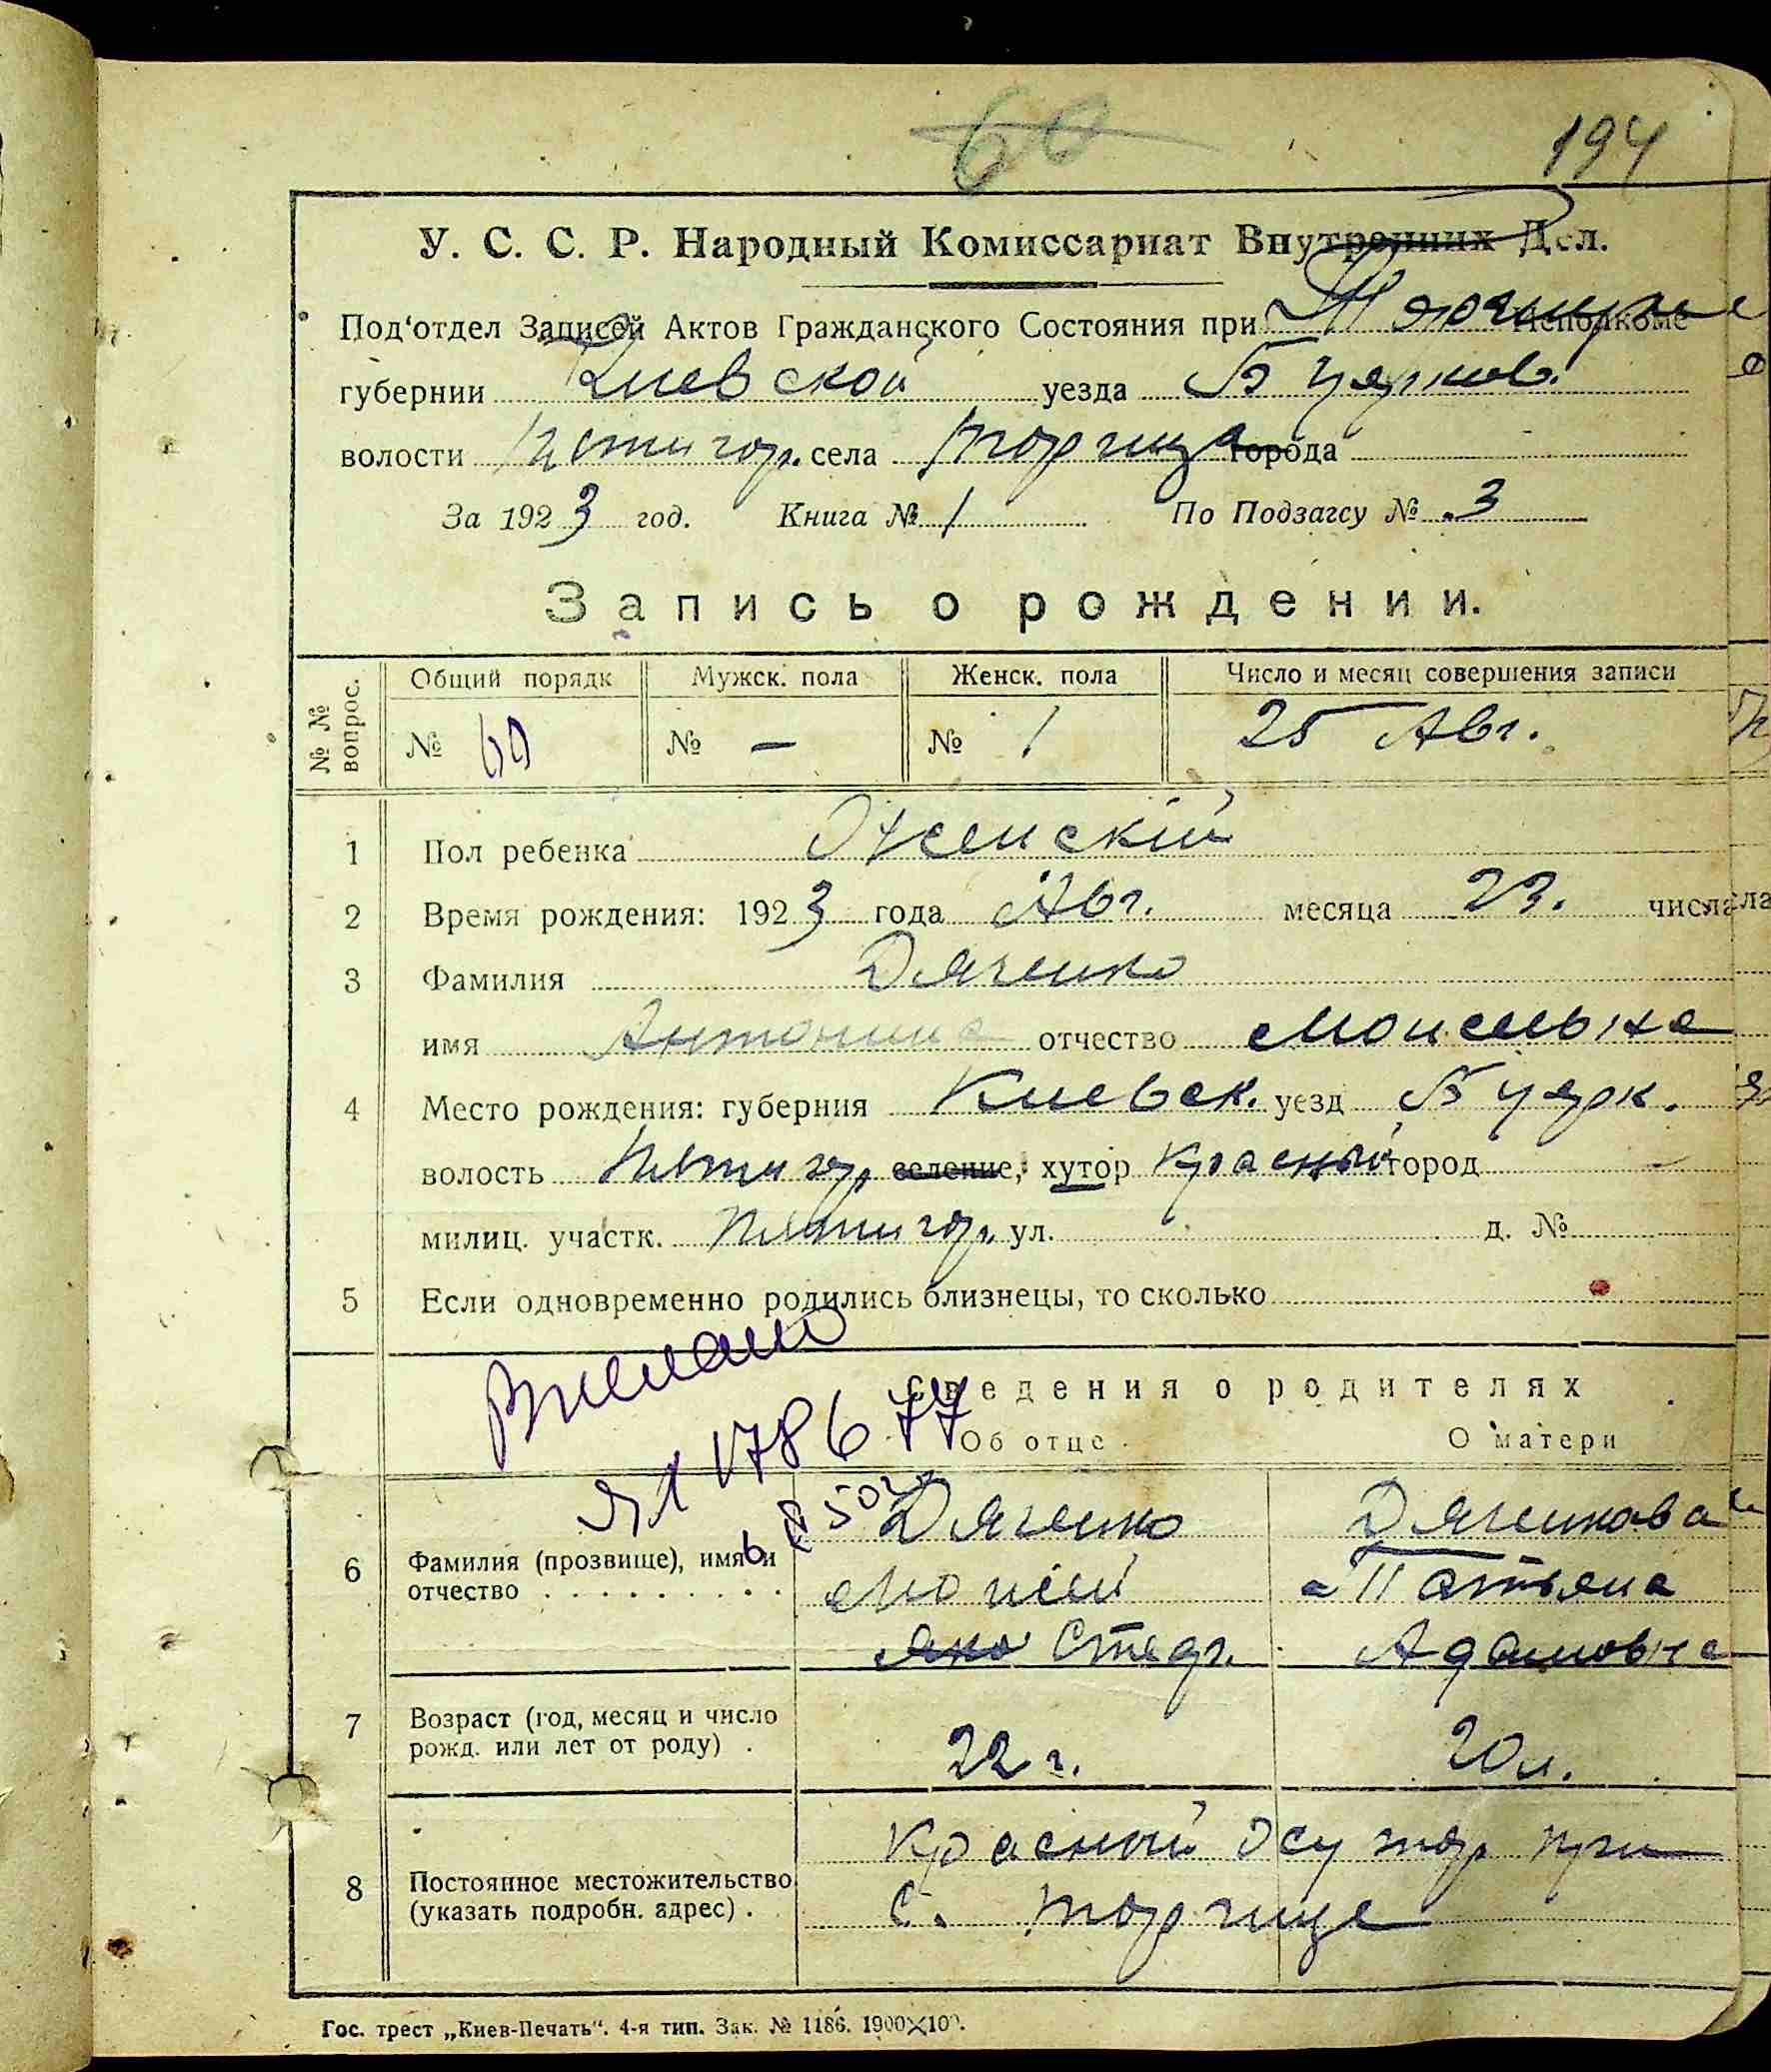 60
194
У. С. С. Р. Народный Комиссариат Внутренних Дел.
Под'отдел Записей Актов Гражданского Состояния при Исполкоме
губернии Киевской уезда Б Церков.
волости Пятигор. села Торчица города
За 1923 год. Книга № 1 По Подзагсу № 3
Запись о рождении.
№ № вопрос.
Общий порядк Мужск. пола Женск. пола Число и месяц совершения записи
№ 60 № — № 1 25 Авг.
1 Пол ребенка Женскій
2 Время рождения: 1923 года Авг. месяца 23. числа
3 Фамилия Дяченко
имя Антонина отчество Моисеевна
4 Место рождения: губерния Киевск. уезд Б Церк.
волость Пятигор селение, хутор Красный город
милиц. участк. Пятигор. ул. д. №
5 Если одновременно родились близнецы, то сколько
Сведения о родителях
ЯА 178677
Об отце О матери
6 Фамилия (прозвище), имя и отчество
Дяченко Дяченкова
Моисей Татьяна
Адамовна
7 Возраст (год, месяц и число рожд. или лет от роду) .
22 г. 20 л.
8 Постоянное местожительство (указать подробн. адрес) .
Красный Хутор при
с. Торчице
Гос. трест „Киев-Печать“. 4-я тип. Зак. № 1186. 1900×100.